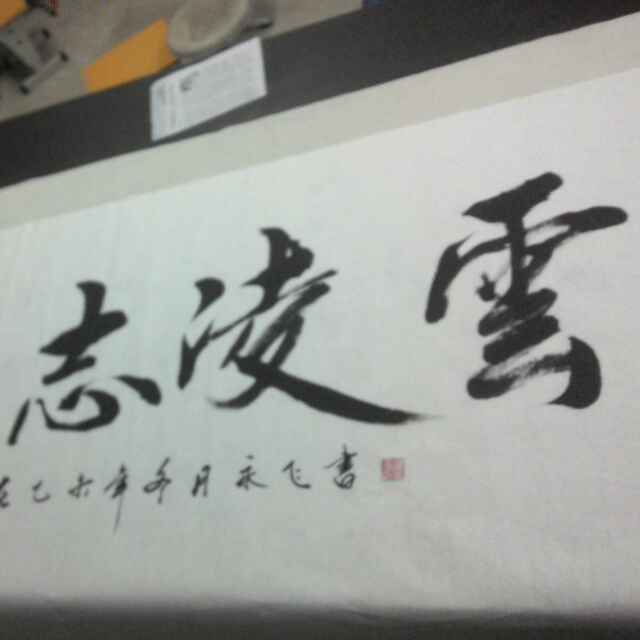 志凌雲
乙未年冬月永飞書